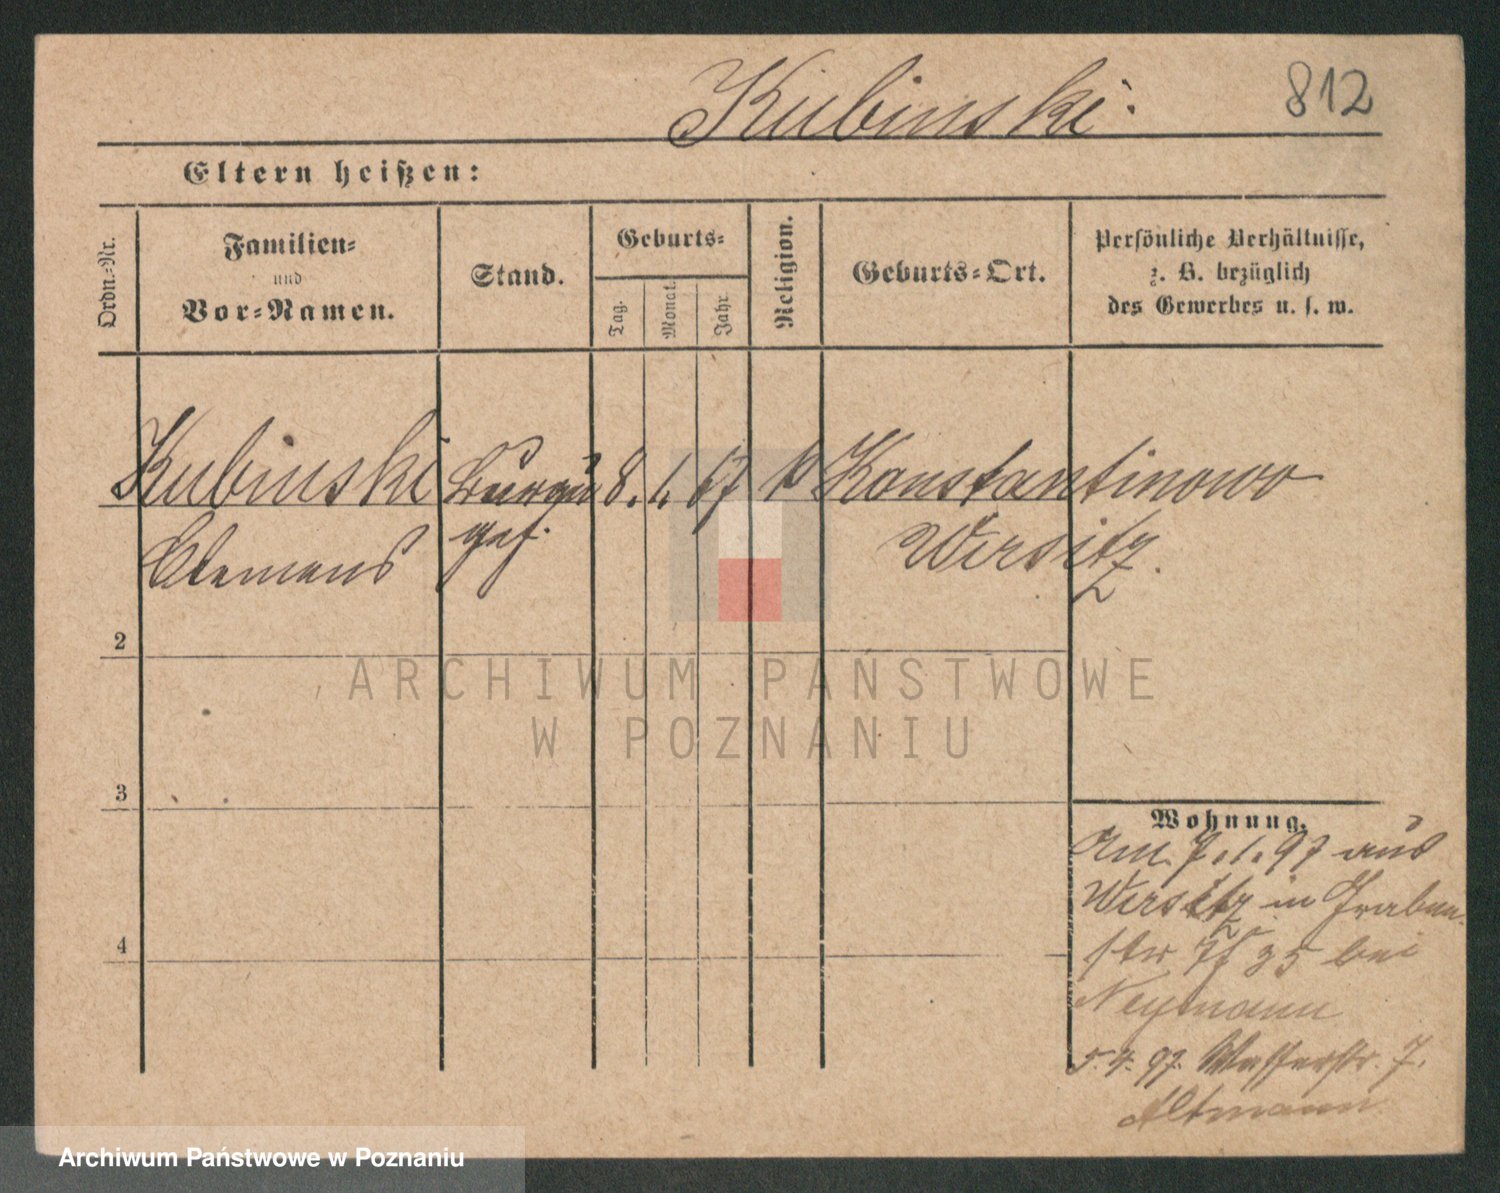 Kubinski.
812
Eltern heißen:
Ordn.-Nr.
Familien-
und
Vor-Namen.
Stand.
Geburts-
Tag.
Monat.
Jahr.
Religion.
Geburts-Ort.
Persönliche Verhältnisse,
z. B. bezüglich
des Gewerbes u. s. w.
Kubinski
8. 1. 67
k
Konstantinowo
Clemens
gef.
Wirsitz.
2
3
4
Wohnung.
Am 7.1.97 aus
Wirsitz in Graben
str 35 bei
Neymann
5.4.97. Wasserstr. 7.
Altmann
ARCHIWUM PAŃSTWOWE
W POZNANIU
Archiwum Państwowe w Poznaniu